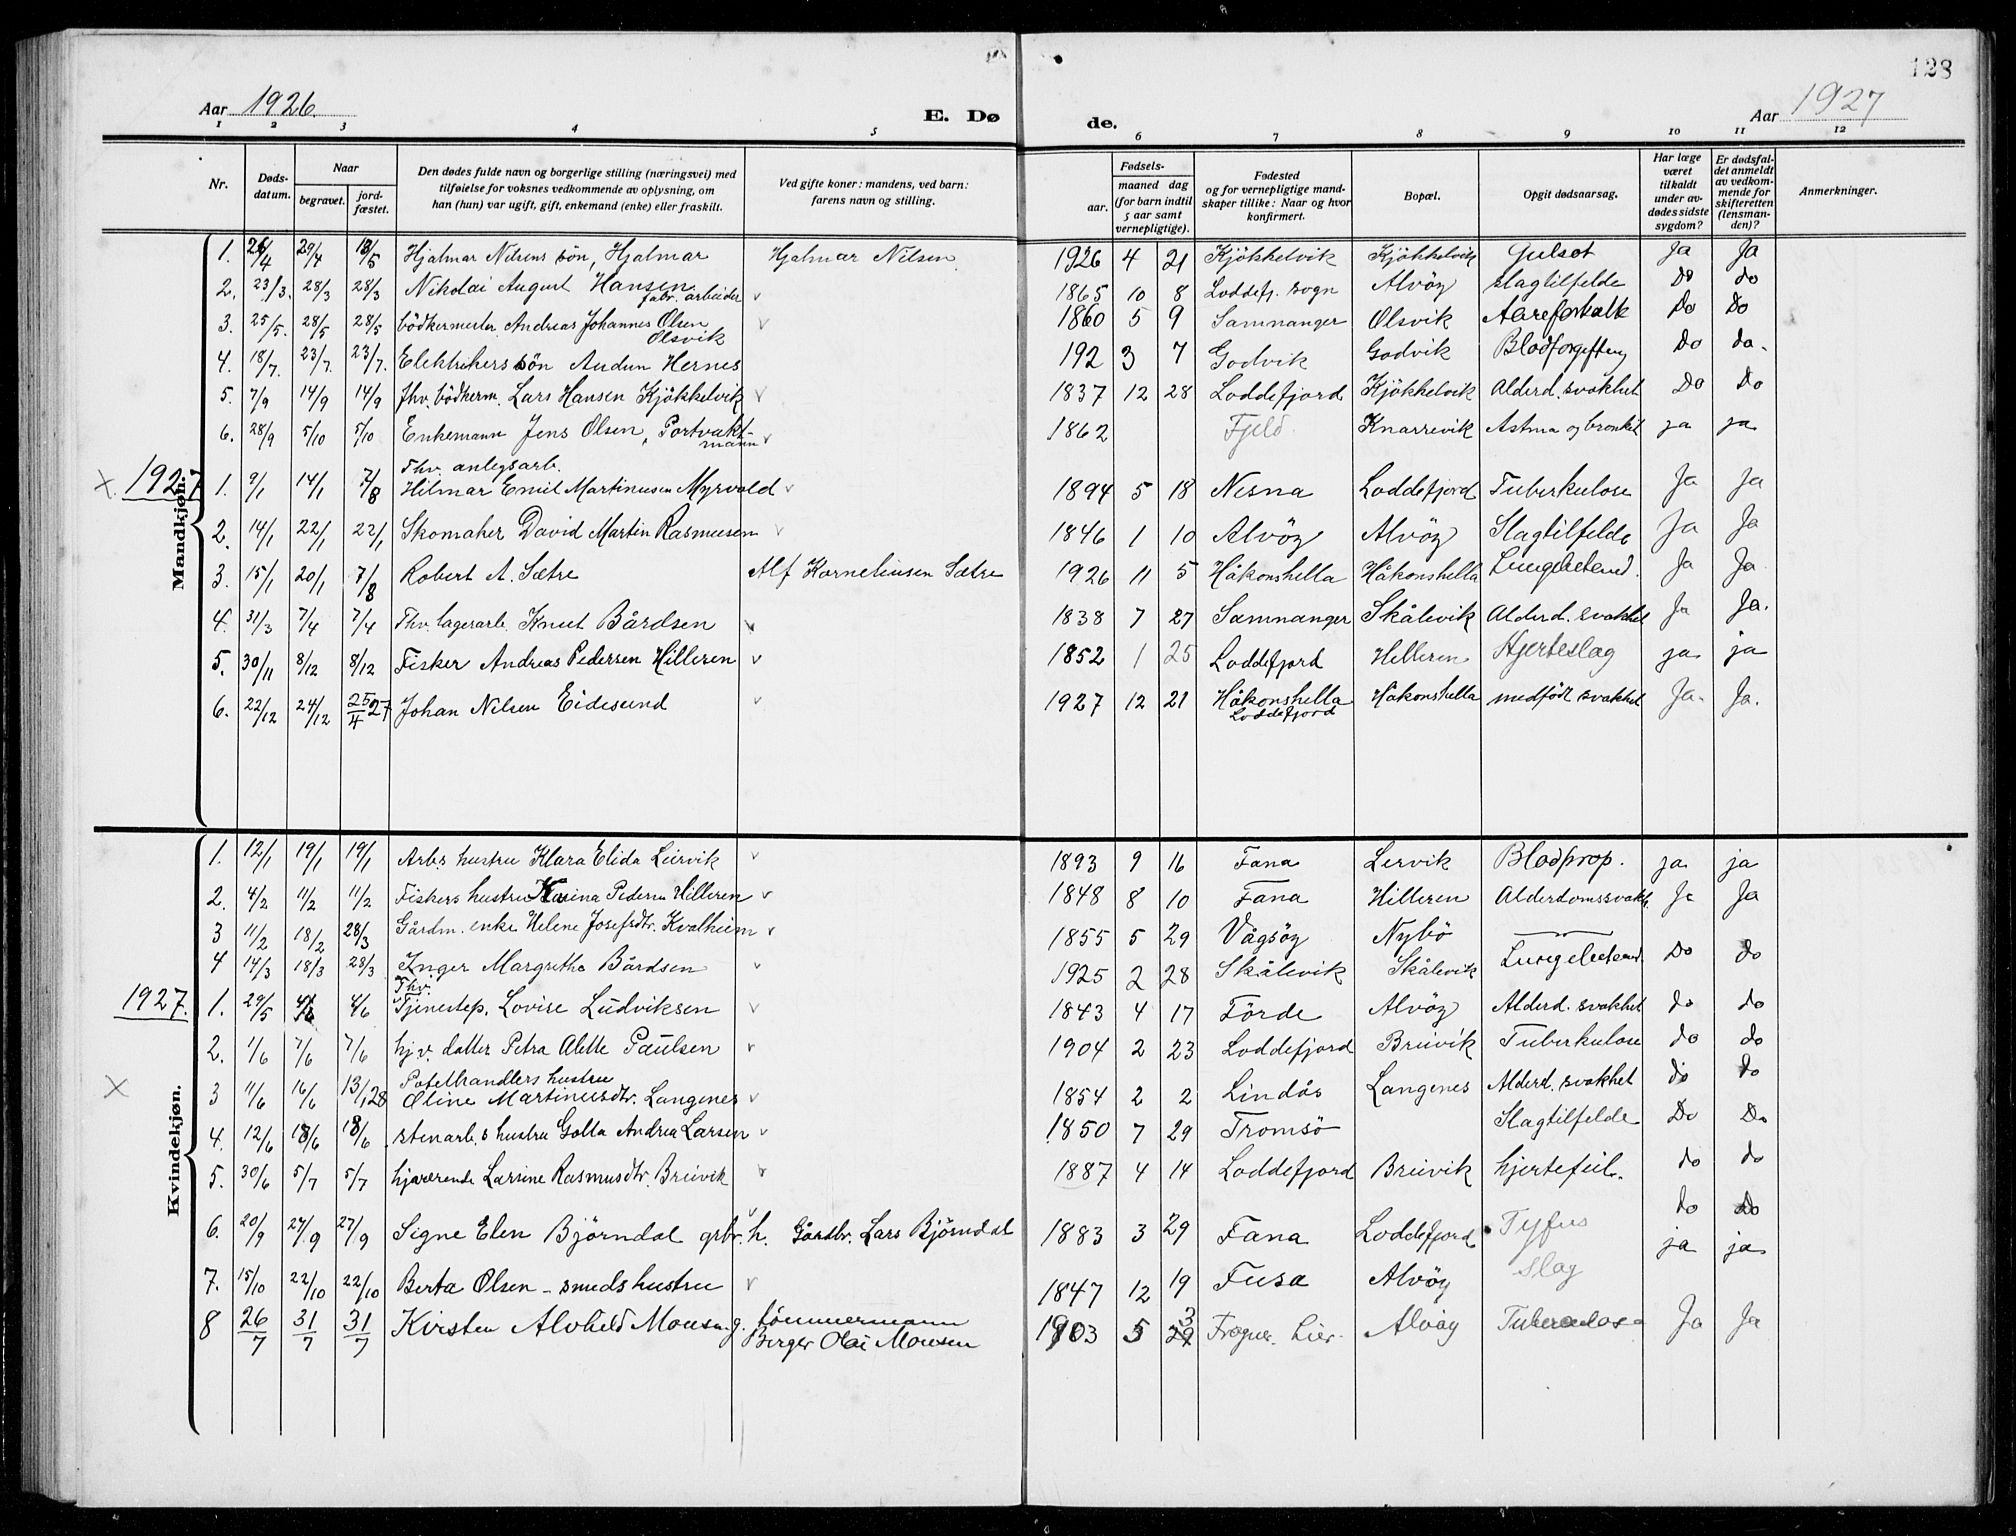 128
Aar 1926.
E. Dø de.
Aar 1927
1 2 3 4 5 6 7 8 9 10 11 12
Nr. Døds-datum. Naar begravet. jord-fæstet. Den dødes fulde navn og borgerlige stilling (næringsvei) med tilføielse for voksnes vedkommende av oplysning, om han (hun) var ugift, gift, enkemand (enke) eller fraskilt. Ved gifte koner: mandens, ved barn: farens navn og stilling. Fødsels- aar. maaned dag (for barn indtil 5 aar samt vernepligtige). Fødested og for vernepligtige mand-skaper tillike: Naar og hvor konfirmert. Bopæl. Opgit dødsaarsag. Har læge været tilkaldt under av-dødes sidste sygdom? Er dødsfal-det anmeldt av vedkom-mende for skifteretten (lensman-den)? Anmerkninger.
Mandkjøn.
1. 26/4 29/4 13/5 Hjalmar Nilsens sön, Hjalmar Hjalmar Nilsen 1926 4 21 Kjökkelvik Kjökkelvik Gulsot Ja Ja
2. 23/3. 28/3 28/3 Nikolai August Hansen fabr. arbeider v 1865 10 8 Loddefj. sogn Alvöy slagtilfelde Do do
3. 25/5. 28/5 28/5 bödkermester Andreas Johannes Olsen Olsvik v 1860 5 9 Samnanger Olsvik Aareforkalk Do Do
4. 18/7. 23/7. 23/7. Elektrikers sön Audun Hernes 192 3 7 Godvik Godvik Blodforgiftny Do do.
5. 7/9 14/9 14/9 fhv. bödkerm. Lars Hansen Kjökkelvik v 1837 12 28 Loddefjord Kjökkelvik Alderd. svakhet Do Do
6. 28/9 5/10 5/10 Enkemann Jens Olsen, Portvakt-mann v 1862 Fjeld. Knarrevik Astma og bronkit ja ja
X 1927
1. 9/1 14/1 7/8 Fhv. anlegsarb. Hilmar Emil Martinusen Myrvold v 1894 5 18 Nesna Loddefjord Tuberkulose Ja Ja
2. 14/1 22/1 22/1 Skomaker David Martin Rasmussen v 1846 1 10 Alvöy Alvöy Slagtilfelde Ja Ja
3. 15/1 20/1 7/8 Robert A. Sætre Alf Korneliusen Sætre 1926 11 5 Håkonshella Håkonshella Lungebetend. Ja Ja
4. 31/3 7/4 7/4 Fhv. lagerarb. Knut Bårdsen v 1838 7 27 Samnanger Skålevik Alderd. svakhet Ja Ja.
5. 30/11 8/12 8/12 Fisker Andreas Pedersen Hilleren v 1852 1 25 Loddefjord Hilleren Hjerteslag ja ja
6. 22/12 24/12 25/4 27 Johan Nilsen Eidesund v 1927 12 21 Håkonshella Loddefjord Håkonshella medfödt svakhet Ja. Ja.
Kvindekjøn.
1. 12/1 19/1 19/1 Arbs hustru Klara Elida Leirvik v 1893 9 16 Fana Lervik Blodprop. ja ja
2. 4/2 11/2 11/2 Fiskers hustru Karina Pederne Hilleren v 1848 8 10 Fana Hilleren Alderdomssvakh. Ja Ja
3 11/2 18/2 28/3 Gårdm. enke Helene Josefsdtr. Kvalheim v 1855 5 29 Vågsöy Nybö
4 14/3 18/3 28/3 Inger Margrethe Bårdsen v 1925 2 28 Skålevik Skålevik Lungebetend. Do do
1927.
1. 29/5 4/6 4/6 Fhv. Tjenestep. Lovise Ludviksen v 1843 4 17 Förde Alvöy Alderd. svakhet do do
2. 1/6 7/6 7/6 hjv. datter Petra Alette Paulsen v 1904 2 23 Loddefjord Breivik Tuberkulose do do
X 3 11/6 16/6 13/1 28 Potethandlers hustru Oline Martinusdtr. Langenes v 1854 2 2 Lindås Langenes Alderd. svakhet do do
4. 12/6 18/6 18/6 stenarb.s hustru Golla Andrea Larsen v 1850 7 29 Tromsö Slagtilfelde Do Do
5. 30/6 5/7 5/7 hjværende Larsine Rasmusdtr. Breivik v 1887 4 14 Loddefjord Breivik hjertefeil. do do
6. 20/9 27/9 27/9 Signe Elen Björndal grbr. h. Gårdbr. Lars Björndal 1883 3 29 Fana Loddefjord Tyfus do Do
7. 15/10 22/10 22/10 Berta Olsen - smeds hustru v 1847 12 19 Fusa Alvöy Slag ja ja
8 26/7 31/7 31/7 Kirsten Alvhild Monsen g. tömmermann Birger Olai Monsen 1903 5 3 29 Frogner. Lier. Alvöy Tuberculose Ja Ja